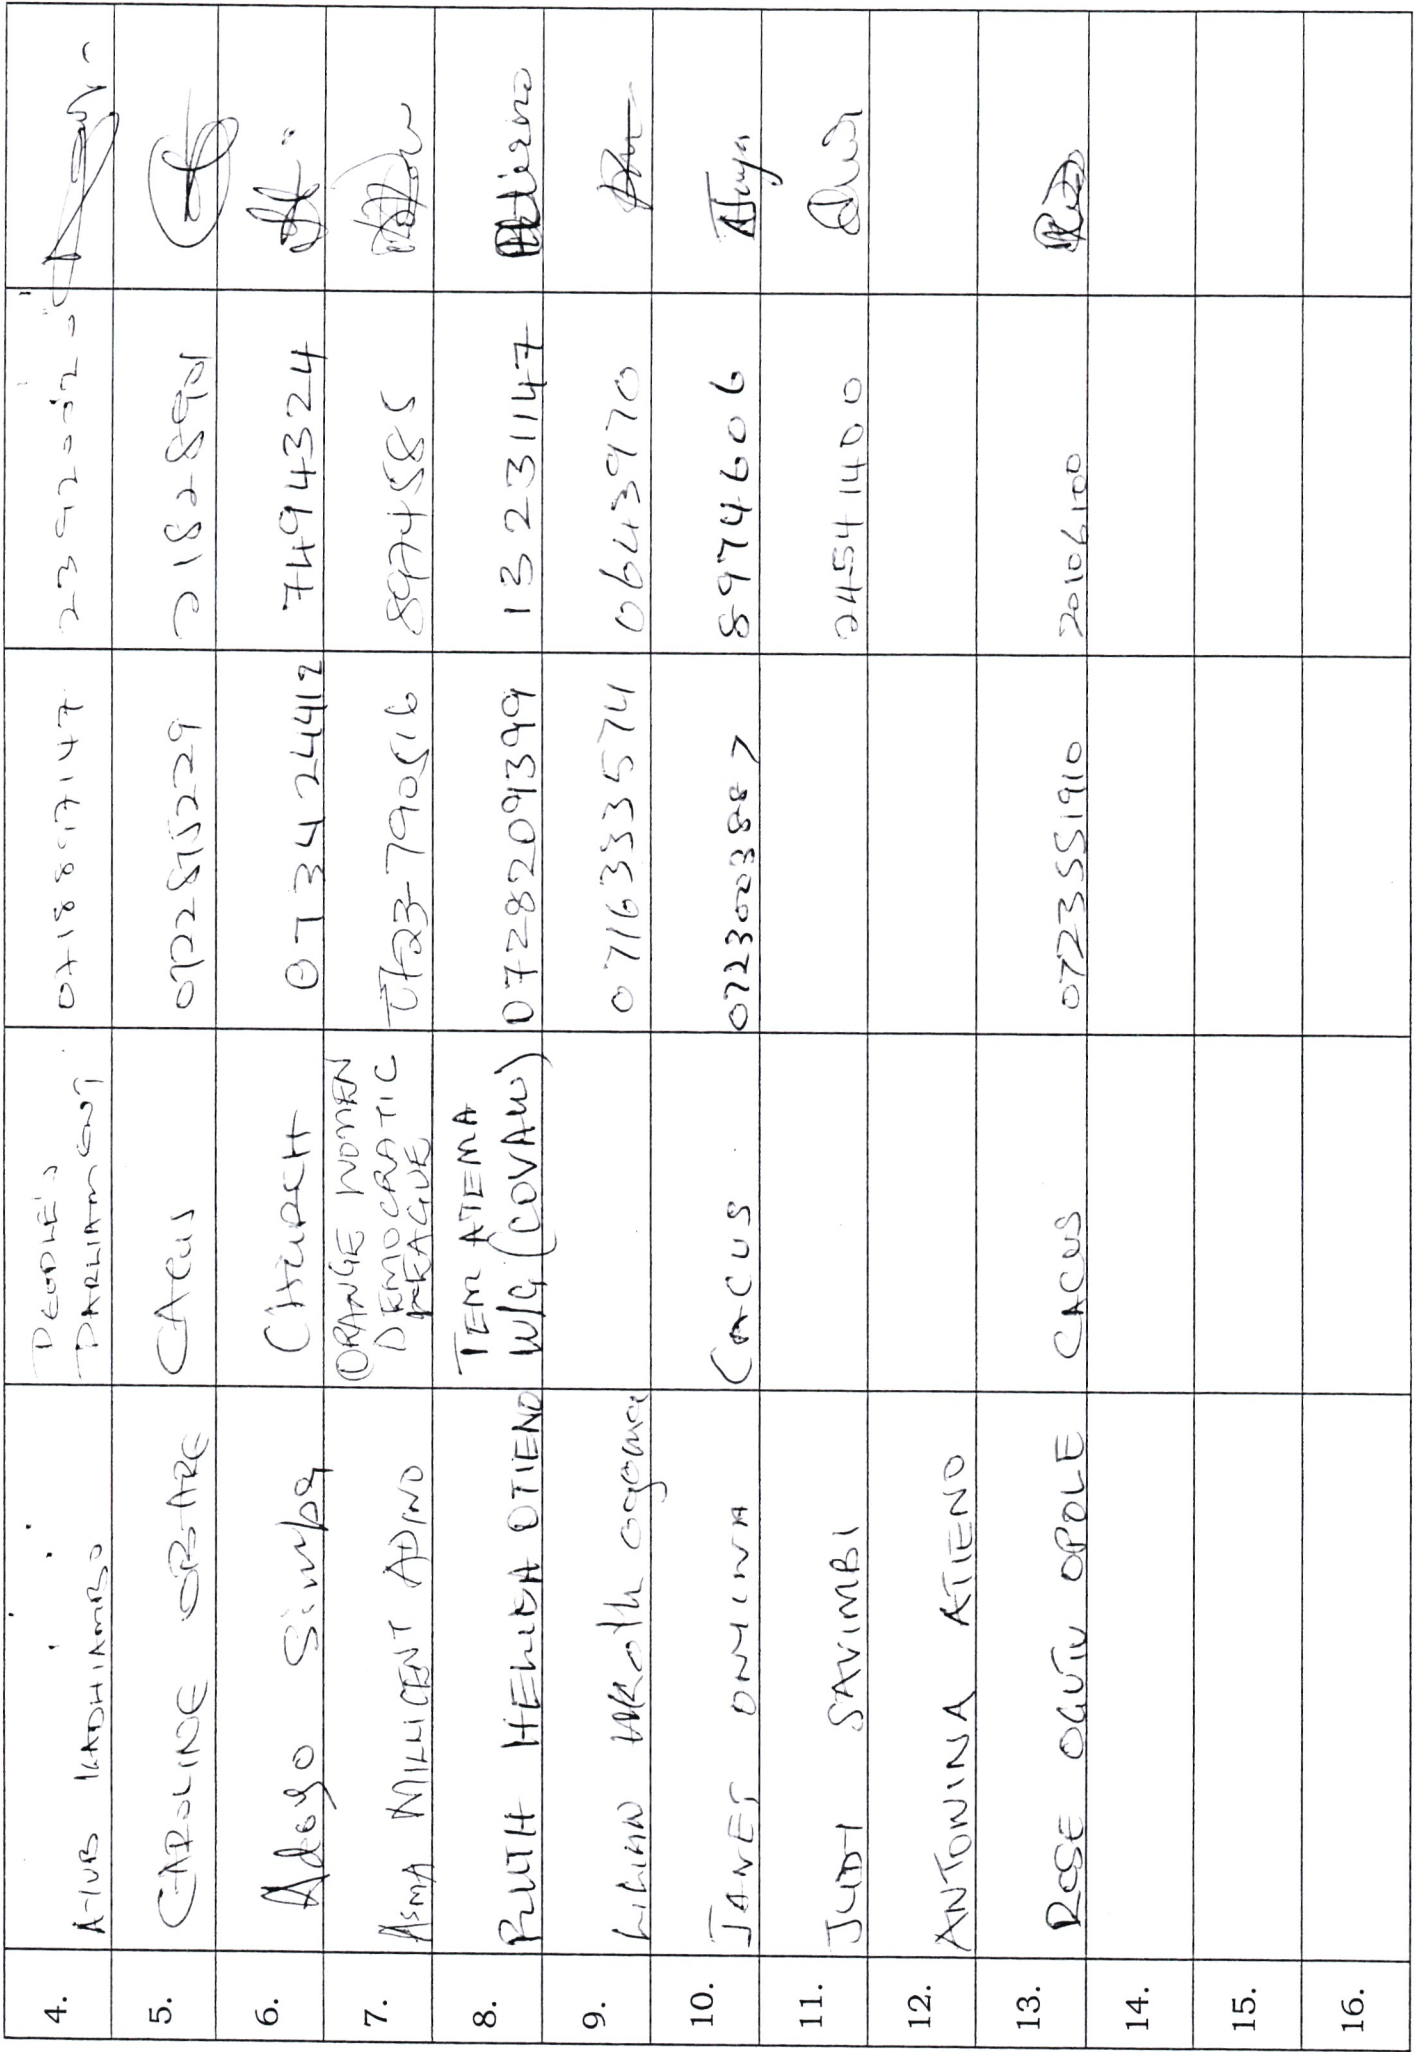 4. AYUB KADHIAMBO PEOPLE'S PARLIAMENT 0718897147
5. CAROLINE OBARE CACUS 0722875229 21828901
6. Adoyo Simba CHURCH 0734244412 7494324
7. ASMA MILLICENT ADINO ORANGE WOMEN DEMOCRATIC LEAGUE 0723-790516 8974585
8. RUTH HELIDA OTIENO TEM ATEMA W/G (COVAW) 0728209399 13231147
9. Lilian Ogoma 0716333574 0643970
10. JANET ONYINNA CACUS 0723003887 8974606
11. JUDY SAVIMBI 24541400
12. ANTONINA ATIENO
13. ROSE OGUTU OPOLE CACUS 0723551910 20106100
14.
15.
16.